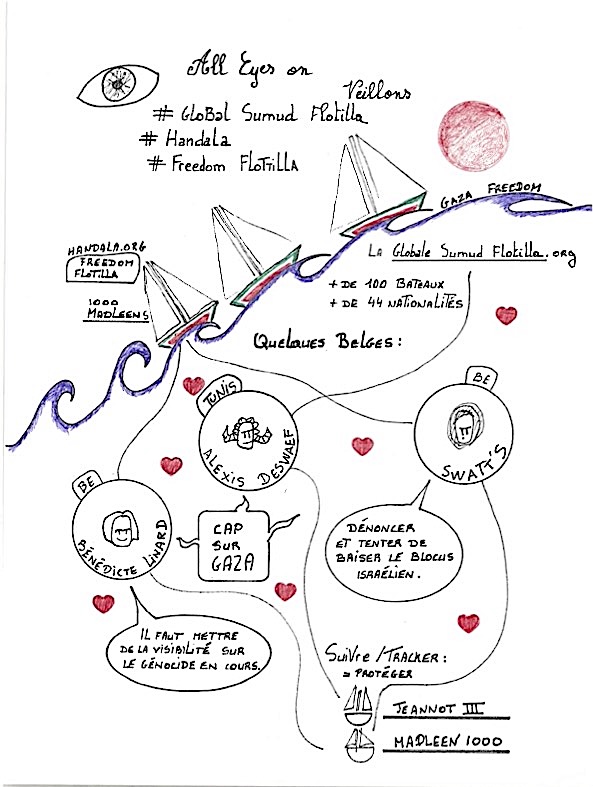 All Eyes on
Veillons
# GloBal Sumud Flotilla
# Handala
# Freedom FLOTILLA
GAZA FREEDOM
HANDALA.ORG
FREEDOM
FLOTILLA
1000
MADLEENS
LA Globale Sumud Flotilla.org
+ DE 100 BATEAUX
+ DE 44 NATIONALITÉS
Quelques Belges :
TUNIS
ALEXIS DESWAEF
BE
SWATT'S
BE
BÉNÉDICTE LINARD
CAP
SUR
GAZA
DÉNONCER
ET TENTER DE
BRISER LE BLOCUS
ISRAÉLIEN.
IL FAUT METTRE
DE LA VISIBILITÉ SUR
LE GÉNOCIDE EN COURS.
Suivre / Tracker :
= PROTÉGER
JEANNOT III
MADLEEN 1000